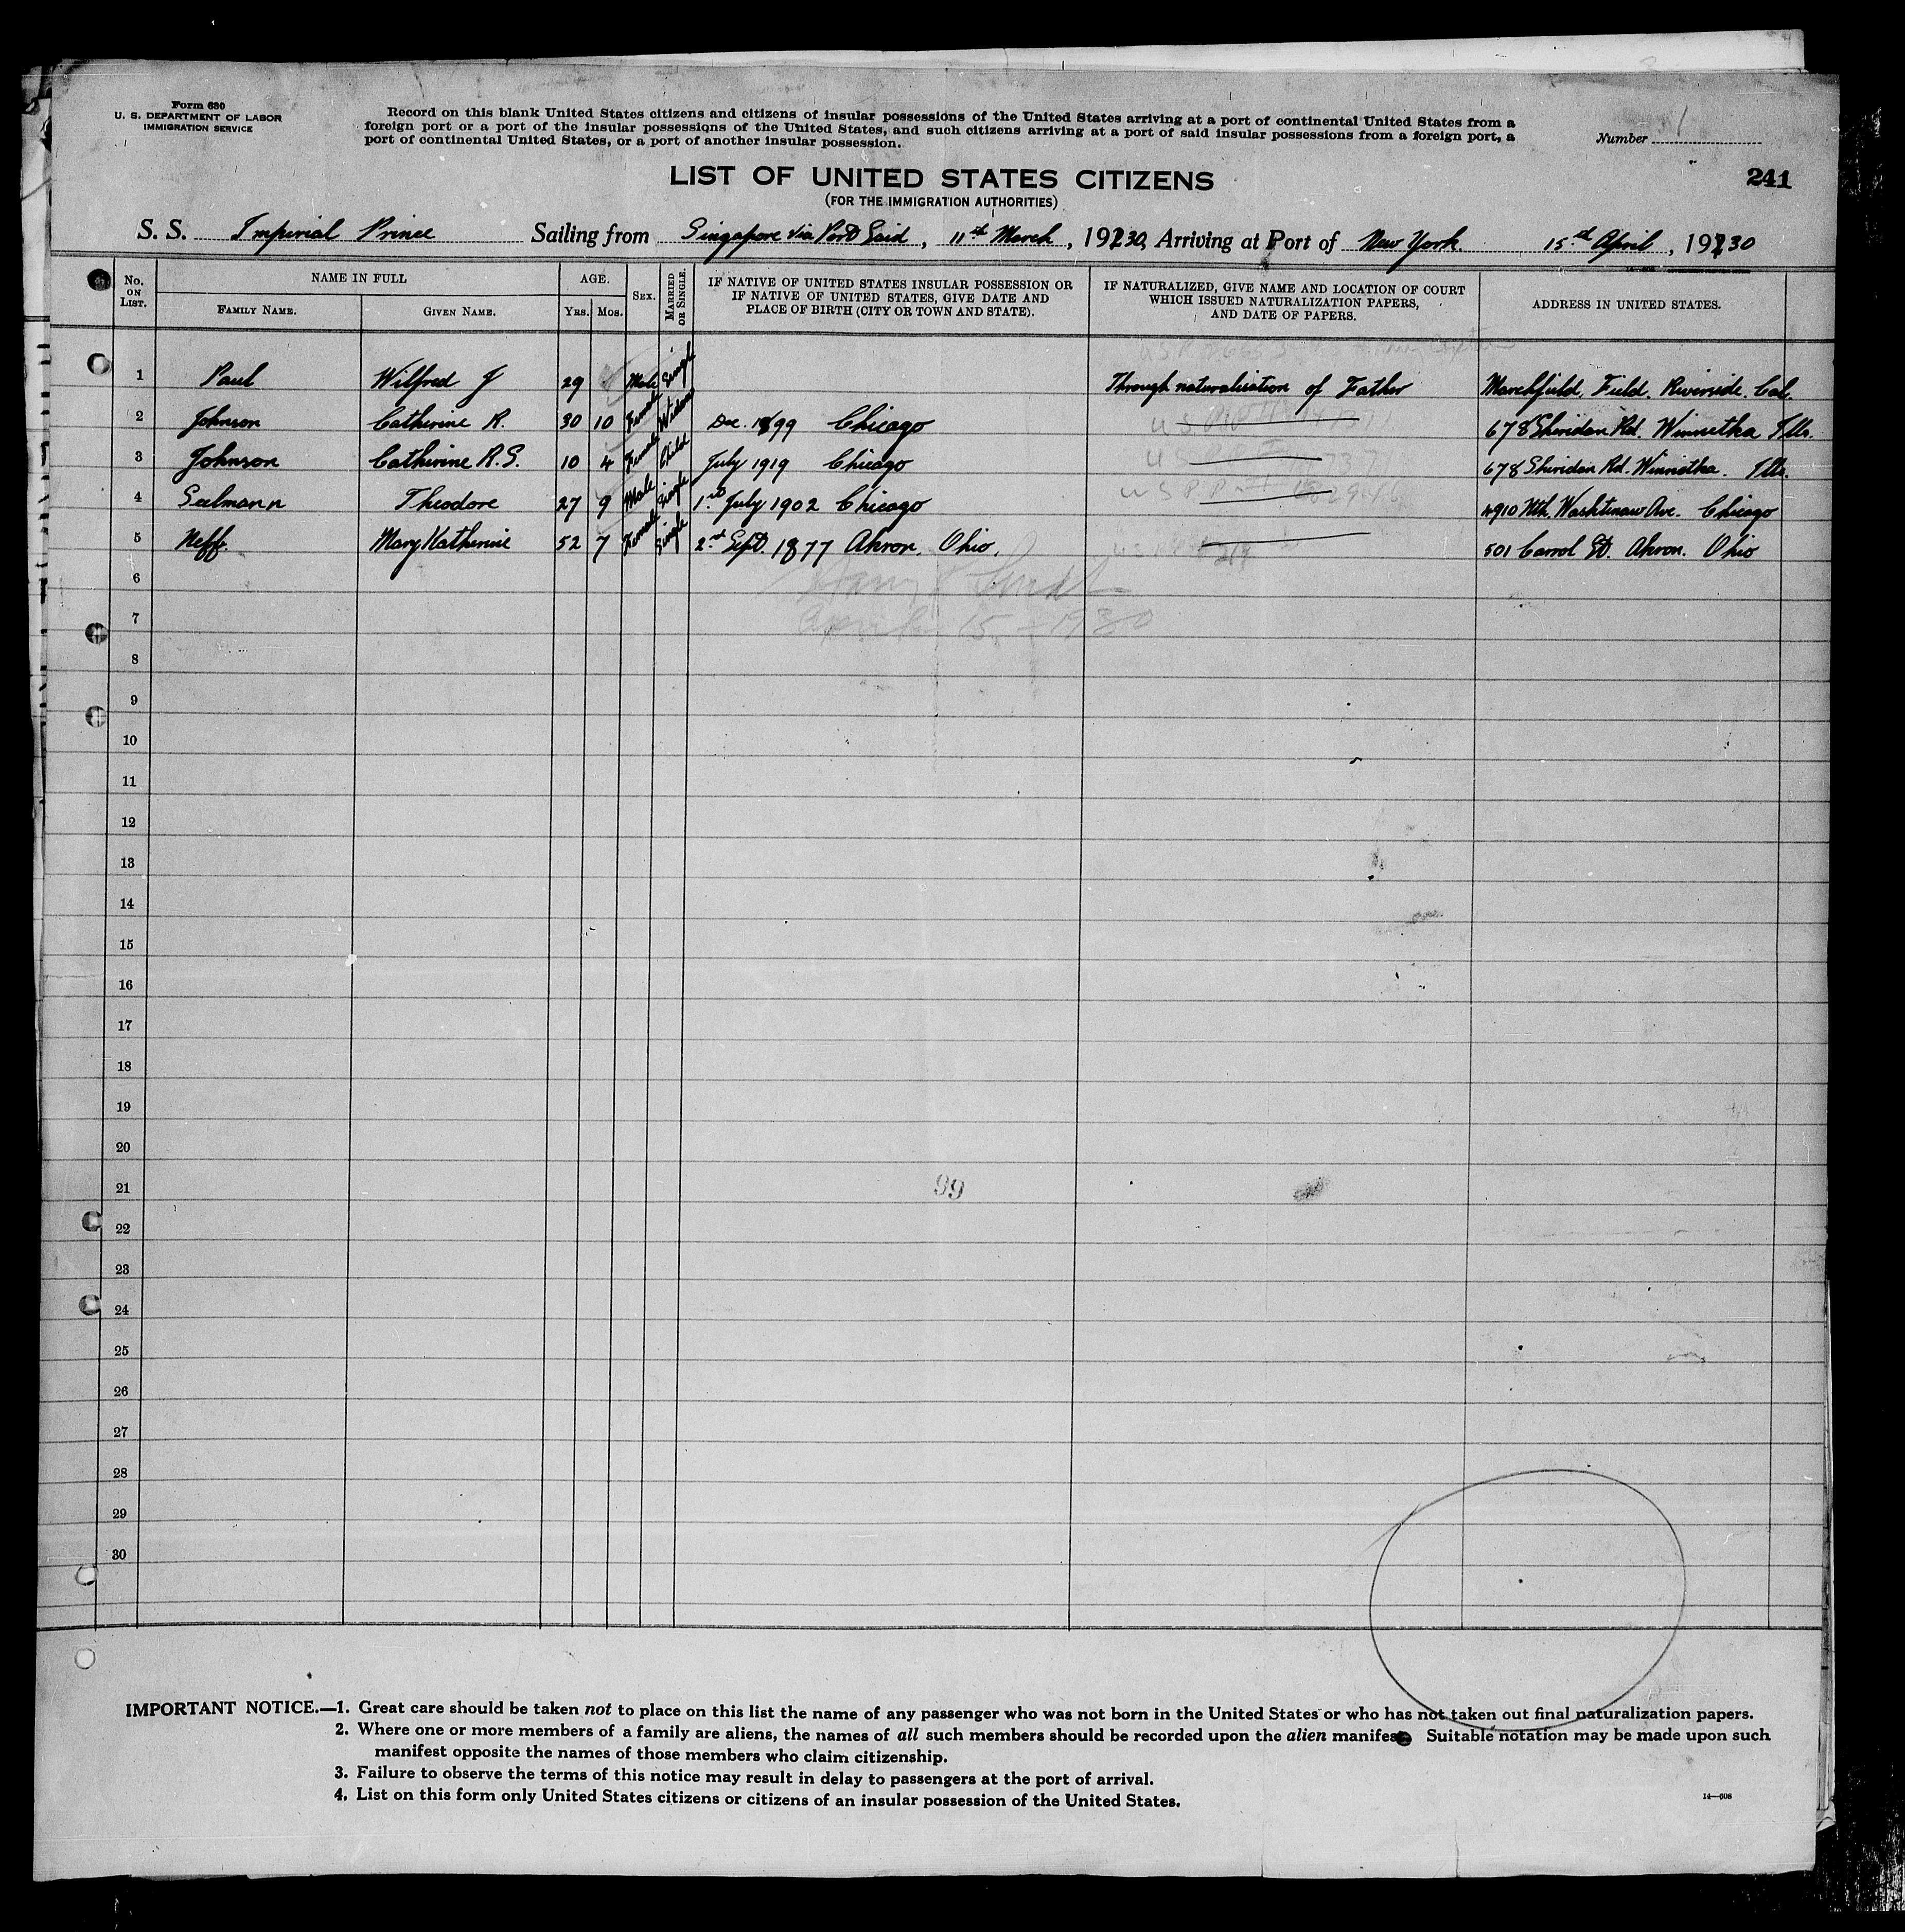 Form 630
U. S. DEPARTMENT OF LABOR
IMMIGRATION SERVICE
Record on this blank United States citizens and citizens of insular possessions of the United States arriving at a port of continental United States from a
foreign port or a port of the insular possessions of the United States, and such citizens arriving at a port of said insular possessions from a foreign port, a
port of continental United States, or a port of another insular possession.
Number 1
241
LIST OF UNITED STATES CITIZENS
(FOR THE IMMIGRATION AUTHORITIES)
S. S. Imperial Prince Sailing from Singapore via Port Said, 11th March, 1930, Arriving at Port of New York. 15th April, 1930
No. ON LIST. NAME IN FULL AGE. SEX. MARRIED OR SINGLE. IF NATIVE OF UNITED STATES INSULAR POSSESSION OR IF NATIVE OF UNITED STATES, GIVE DATE AND PLACE OF BIRTH (CITY OR TOWN AND STATE). IF NATURALIZED, GIVE NAME AND LOCATION OF COURT WHICH ISSUED NATURALIZATION PAPERS, AND DATE OF PAPERS. ADDRESS IN UNITED STATES.
FAMILY NAME. GIVEN NAME. YRS. MOS.
1 Paul Wilfred J 29 Male Single Through naturalisation of Father Marchfield Field. Riverside. Cal.
2 Johnson Catherine R. 30 10 Female Widow Dec. 1899 Chicago 678 Sheridan Rd. Winnetka Ills.
3 Johnson Catherine R.S. 10 4 Female Child July 1919 Chicago 678 Sheridan Rd. Winnetka. Ills.
4 Seelmann Theodore 27 9 Male Single 1st July 1902 Chicago 4910 Nth. Washtenaw Ave. Chicago
5 Neff. Mary Katherine 52 7 Female Single 2nd Sept. 1877 Akron. Ohio. 501 Carrol St. Akron. Ohio
6
7 April 15, 1930
8
9
10
11
12
13
14
15
16
17
18
19
20
21 99
22
23
24
25
26
27
28
29
30
IMPORTANT NOTICE.—1. Great care should be taken not to place on this list the name of any passenger who was not born in the United States or who has not taken out final naturalization papers.
2. Where one or more members of a family are aliens, the names of all such members should be recorded upon the alien manifest Suitable notation may be made upon such
manifest opposite the names of those members who claim citizenship.
3. Failure to observe the terms of this notice may result in delay to passengers at the port of arrival.
4. List on this form only United States citizens or citizens of an insular possession of the United States.
14—608